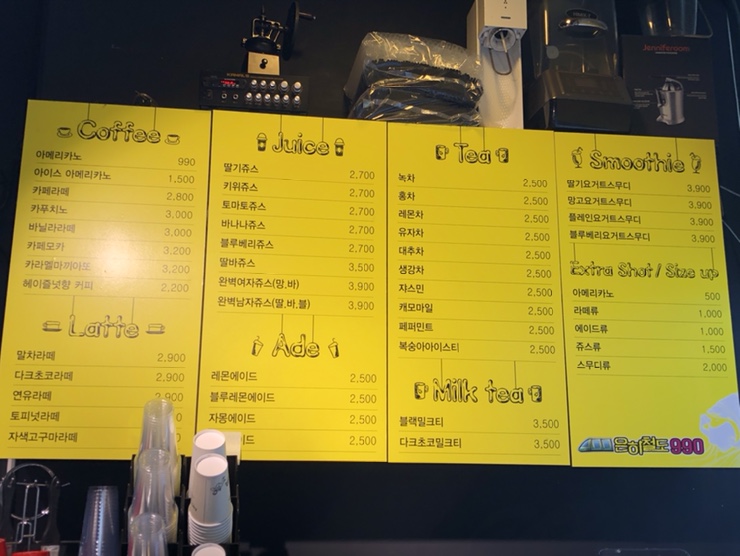 Jenniferoom
Coffee
아메리카노 990
아이스 아메리카노 1,500
카페라떼 2,800
카푸치노 3,000
바닐라라떼 3,000
카페모카 3,200
카라멜마끼아또 3,200
헤이즐넛향 커피 2,200
Latte
말차라떼 2,900
다크초코라떼 2,900
연유라떼 2,900
토피넛라떼
자색고구마라떼
Juice
딸기쥬스 2,700
키위쥬스 2,700
토마토쥬스 2,700
바나나쥬스 2,700
블루베리쥬스 2,700
딸바쥬스 3,500
완벽여자쥬스(망,바) 3,900
완벽남자쥬스(딸,바,블) 3,900
Ade
레몬에이드 2,500
블루레몬에이드 2,500
자몽에이드 2,500
이드 2,500
Tea
녹차 2,500
홍차 2,500
레몬차 2,500
유자차 2,500
대추차 2,500
생강차 2,500
쟈스민 2,500
캐모마일 2,500
페퍼민트 2,500
복숭아아이스티 2,500
Milk tea
블랙밀크티 3,500
다크초코밀크티 3,500
Smoothie
딸기요거트스무디 3,900
망고요거트스무디 3,900
플레인요거트스무디 3,900
블루베리요거트스무디 3,900
Extra Shot / Size up
아메리카노 500
라떼류 1,000
에이드류 1,000
쥬스류 1,500
스무디류 2,000
은하철도990